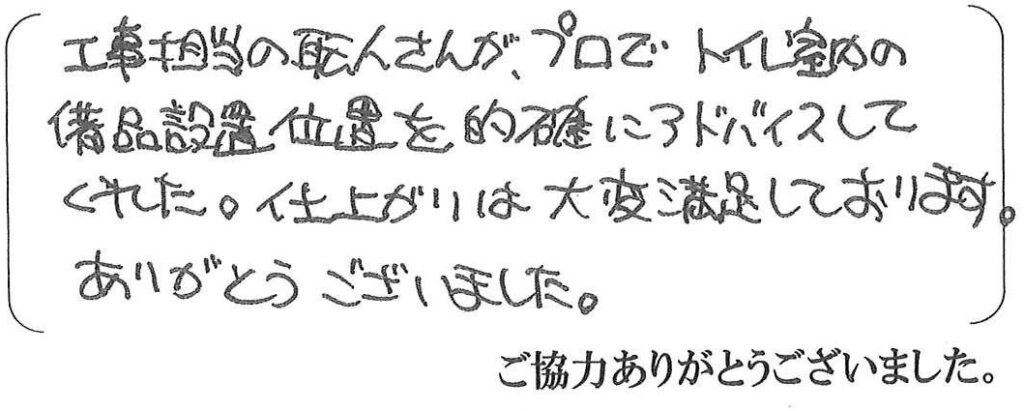 工事担当の職人さんが、プロで トイレ室内の
備品設置位置を的確にアドバイスして
くれた。仕上がりは大変満足しております。
ありがとうございました。
ご協力ありがとうございました。